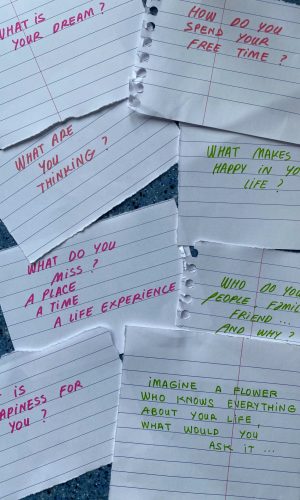 WHAT is
YOUR DREAM ?
HOW DO YOU
SPEND YOUR
FREE TIME ?
WHAT ARE
YOU
THINKING ?
WHAT MAKES
HAPPY IN YO
LIFE ?
WHAT DO YOU
MISS ?
A PLACE
A TIME
A LIFE EXPERIENCE
WHO DO YOU
PEOPLE, FAMIL
FRIEND ...
AND WHY ?
IS
APINESS FOR
YOU ?
iMAGINE A FLOWER
WHO KNOWS EVERYTHING
ABOUT YOUR LIFE,
WHAT WOULD YOU
ASK IT ...